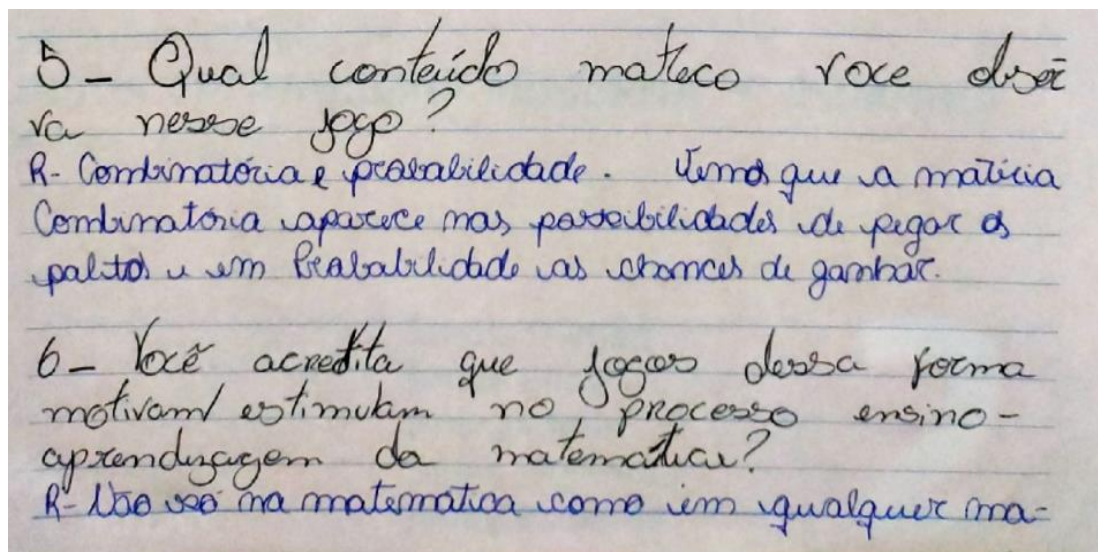 5- Qual conteúdo mateco voce obser
va nesse jogo?
R- Combinatória e probabilidade. Vemos que a matéria
Combinatória aparece nas possibilidades de pegar os
palitos e em Probabilidade as chances de ganhar.
6- Você acredita que jogos dessa forma
motivam/estimulam no processo ensino-
aprendizagem da matemática?
R- Não só na matemática como em qualquer ma-